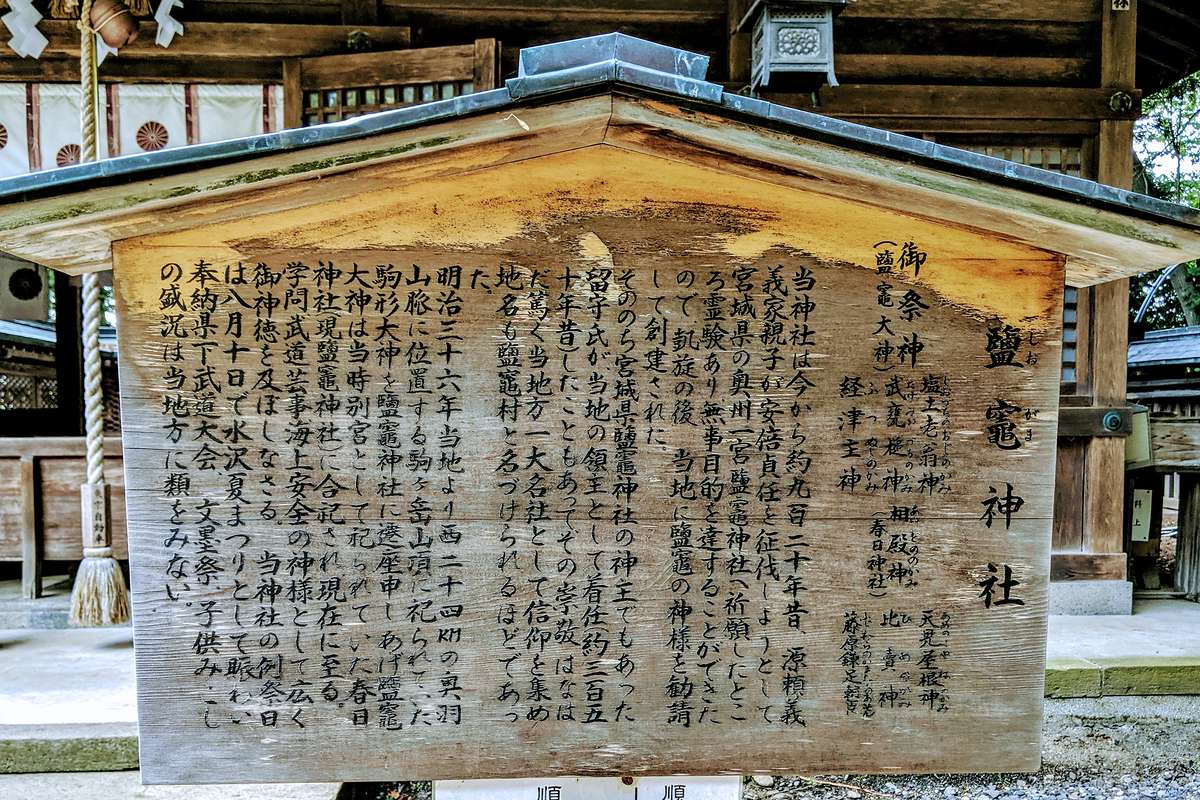 鹽竈神社
しお がま
御祭神
(鹽竈大神)
塩土老翁神
武甕槌神
経津主神
相殿神
(春日神社)
天児屋根神
比売神
当神社は今から約九百二十年昔、源頼義
義家親子が安倍貞任を征伐しようとして
宮城県の奥州一宮鹽竈神社へ祈願したとこ
ろ霊験あり無事目的を達することができた
ので凱旋の後、当地に鹽竈の神様を勧請
して創建された。
そののち宮城県鹽竈神社の神主でもあった
留守氏が当地の領主として着任約三百五
十年昔したこともあってその崇敬はなは
だ篤く当地方一大名社として信仰を集め
地名も鹽竈村と名づけられるほどであっ
た
明治三十六年当地より西二十四KMの奥羽
山脈に位置する駒ヶ岳山頂に祀られていた
駒形大神を鹽竈神社に遷座申しあげ鹽竈
大神は当時別宮として祀られていた春日
神社(現鹽竈神社)に合祀され現在に至る。
学問武道芸事海上安全の神様として広く
御神徳を及ぼしなさる。当神社の例祭日
は八月十日で水沢夏まつりとして賑わい
奉納県下武道大会、文墨祭、子供みこし
の盛況は当地方に類をみない。
順
順